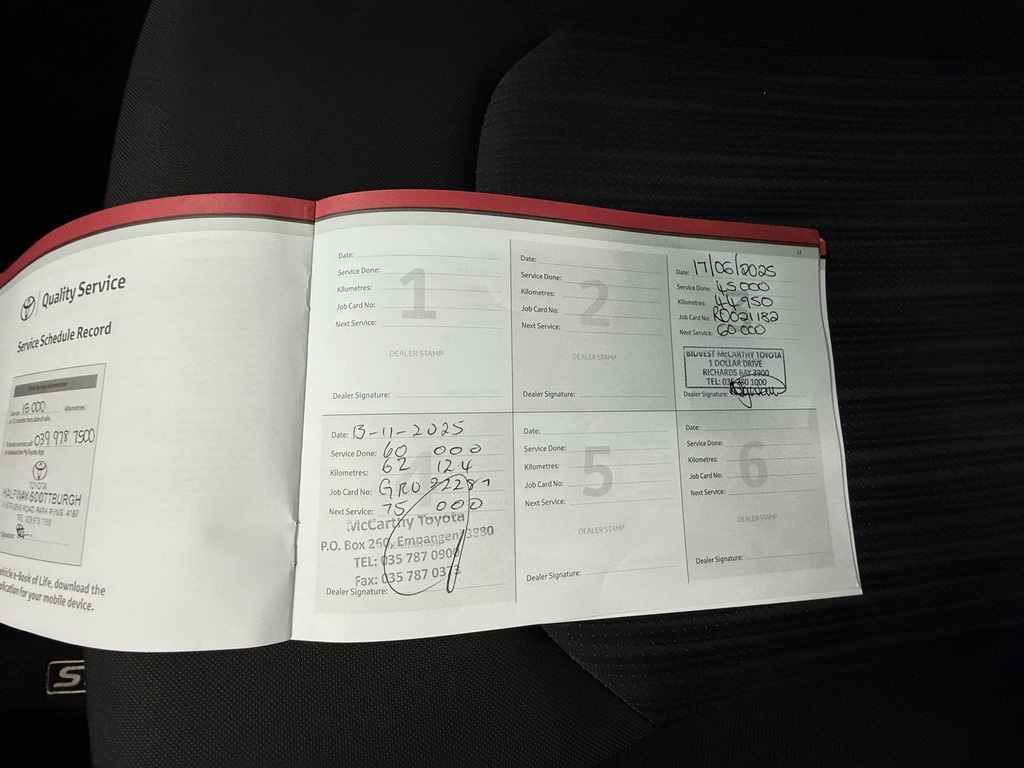 Quality Service
Service Schedule Record
15 000 kilometres
or 12 months from date of sale.
039 978 7500
TOYOTA
HALFWAY SCOTTBURGH
PARK RYNIE, 4187
e-Book of Life, download the
for your mobile device.
Date:
Service Done:
Kilometres:
Job Card No:
Next Service:
1
DEALER STAMP
Dealer Signature:
Date:
Service Done:
Kilometres:
Job Card No:
Next Service:
2
DEALER STAMP
Dealer Signature:
Date: 17/06/2025
Service Done: 45000
Kilometres: 44950
Job Card No: R0021182
Next Service: 60 000
BIDVEST McCARTHY TOYOTA
1 DOLLAR DRIVE
RICHARDS BAY 3900
TEL: 035 780 1000
Dealer Signature:
Date: 13-11-2025
Service Done: 60 000
Kilometres: 62 124
Job Card No:
Next Service: 75 000
4
McCarthy Toyota
P.O. Box 260, Empangeni 3880
TEL: 035 787 0900
Fax: 035 787 0373
Dealer Signature:
Date:
Service Done:
Kilometres:
Job Card No:
Next Service:
5
DEALER STAMP
Dealer Signature:
Date:
Service Done:
Kilometres:
Job Card No:
Next Service:
6
DEALER STAMP
Dealer Signature:
S